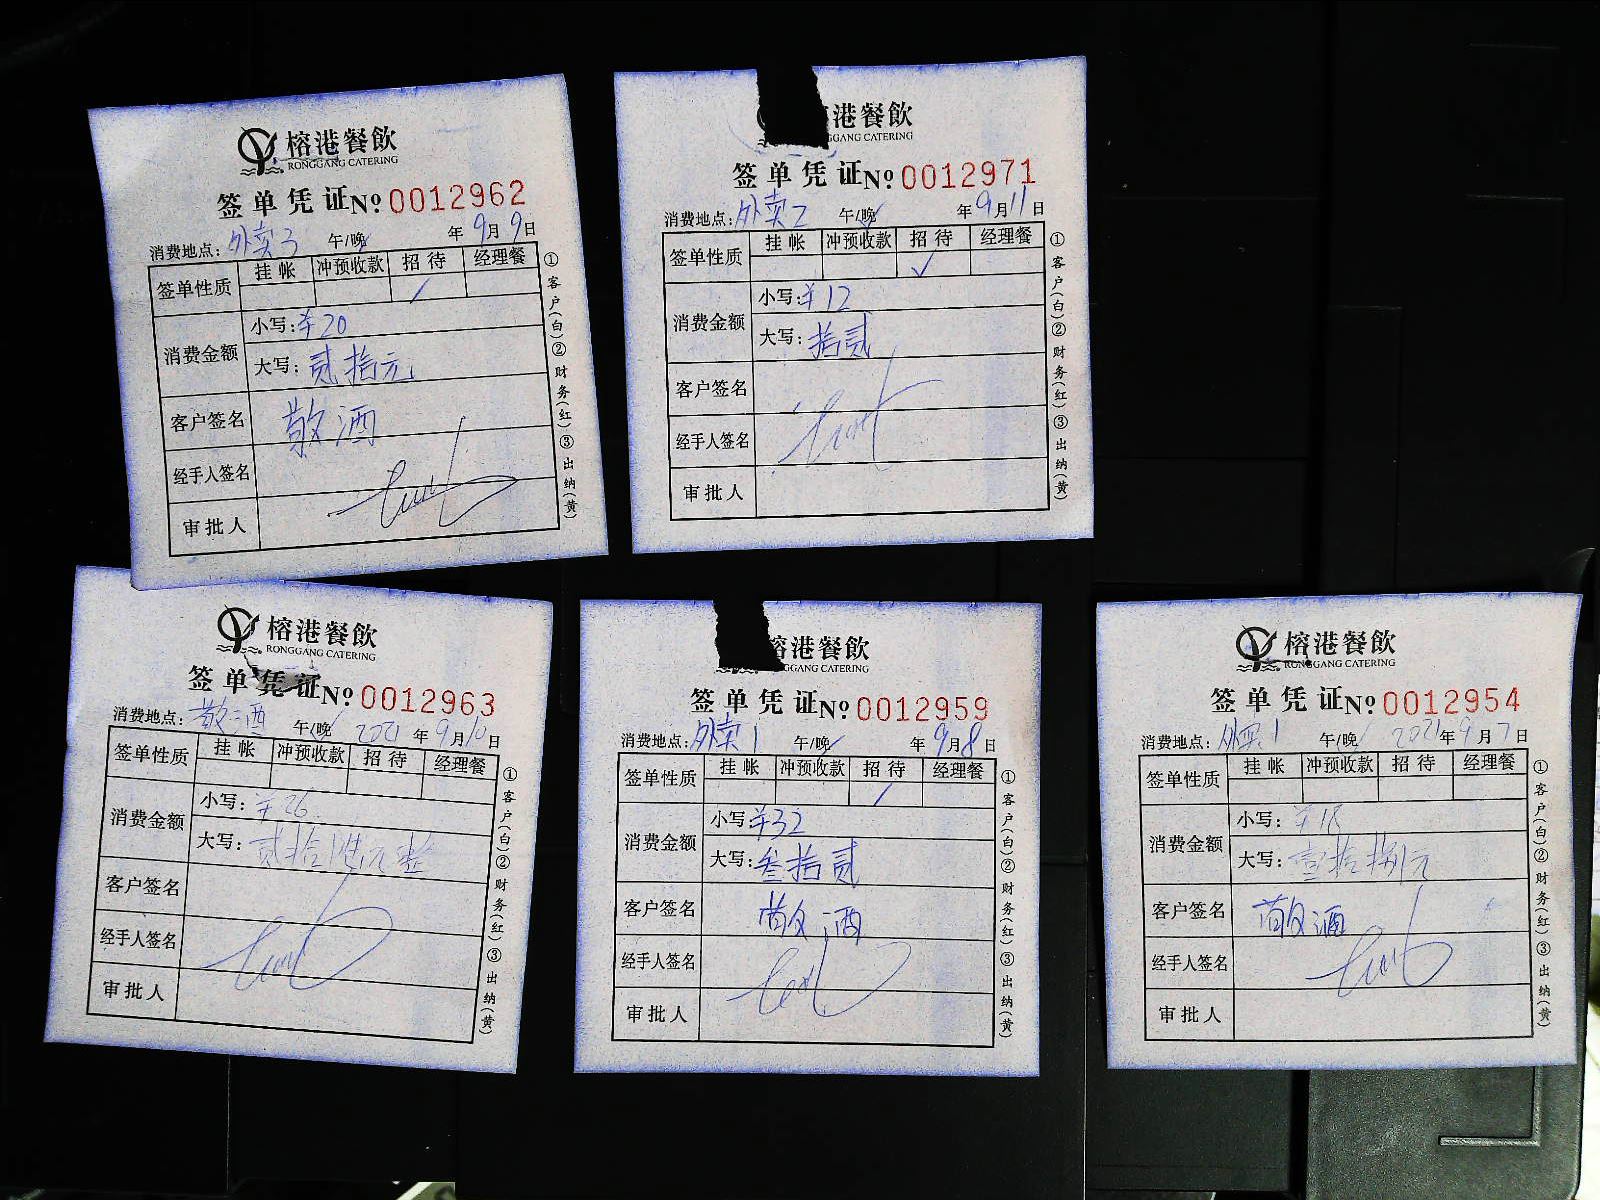 榕港餐飲
RONGGANG CATERING
签单凭证 No 0012962
消费地点: 外卖3 午/晚 年9月9日
签单性质 挂帐 冲预收款 招待 经理餐
✓
消费金额 小写: ¥20
大写: 贰拾元
客户签名 散酒
经手人签名
审批人
①客户(白)②财务(红)③出纳(黄)
港餐飲
GGANG CATERING
签单凭证 No 0012971
消费地点: 外卖2 午/晚✓ 年9月11日
签单性质 挂帐 冲预收款 招待 经理餐
✓
消费金额 小写: ¥12
大写: 拾贰
客户签名
经手人签名
审批人
①客户(白)②财务(红)③出纳(黄)
榕港餐飲
RONGGANG CATERING
签单凭证 No 0012963
消费地点: 散酒 午/晚✓ 2021年9月10日
签单性质 挂帐 冲预收款 招待 经理餐
消费金额 小写: ¥26
大写: 贰拾陆元整
客户签名
经手人签名
审批人
①客户(白)②财务(红)③出纳(黄)
榕港餐飲
GGANG CATERING
签单凭证 No 0012959
消费地点: 外卖1 午/晚✓ 年9月8日
签单性质 挂帐 冲预收款 招待 经理餐
✓
消费金额 小写: ¥32
大写: 叁拾贰
客户签名 散酒
经手人签名
审批人
①客户(白)②财务(红)③出纳(黄)
榕港餐飲
RONGGANG CATERING
签单凭证 No 0012954
消费地点: 外卖1 午/晚✓ 2021年9月7日
签单性质 挂帐 冲预收款 招待 经理餐
消费金额 小写: ¥18
大写: 壹拾捌元
客户签名 散酒
经手人签名
审批人
①客户(白)②财务(红)③出纳(黄)